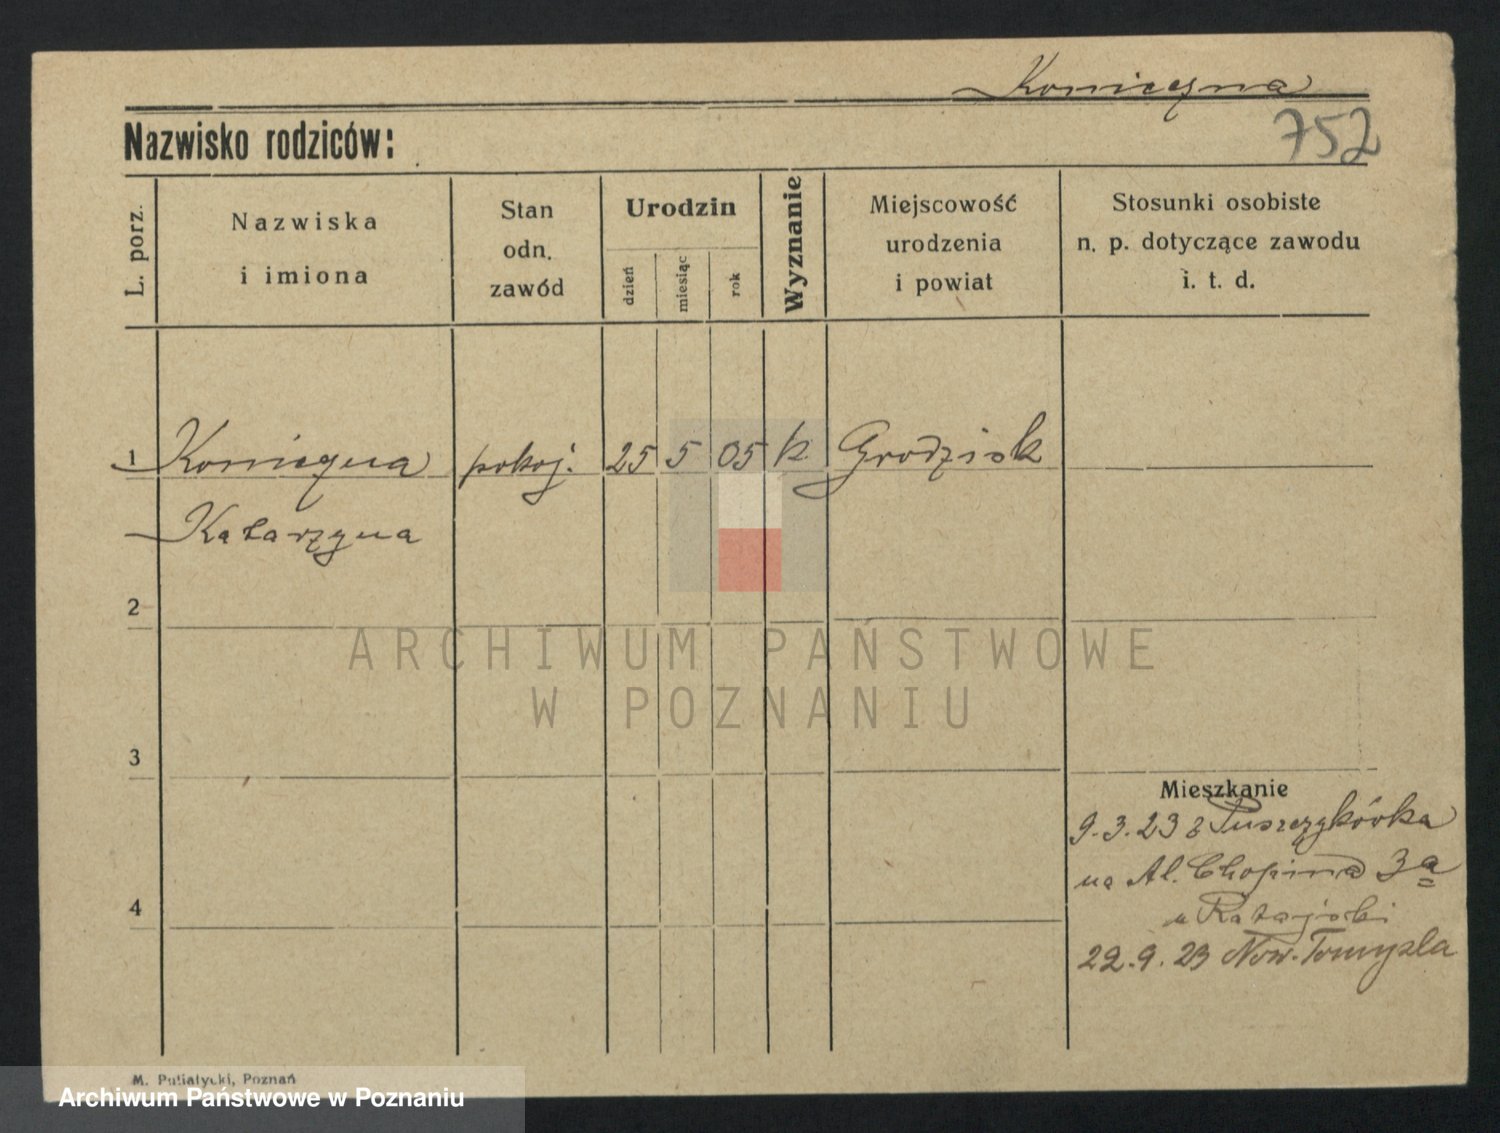 Konieczna
Nazwisko rodziców:
752
L. porz.
Nazwiska
i imiona
Stan
odn.
zawód
Urodzin
dzień
miesiąc
rok
Wyznanie
Miejscowość
urodzenia
i powiat
Stosunki osobiste
n. p. dotyczące zawodu
i. t. d.
1 Konieczna pokoj. 25 5 05 k Grodzisk
Katarzyna
2
ARCHIWUM PAŃSTWOWE
W POZNANIU
3
Mieszkanie
9.3.23 z Puszczykówka
na Al. Chopina 3a
u Ratajski
4
22.9.23 Now. Tomyśla
M. Putiatycki, Poznań
Archiwum Państwowe w Poznaniu